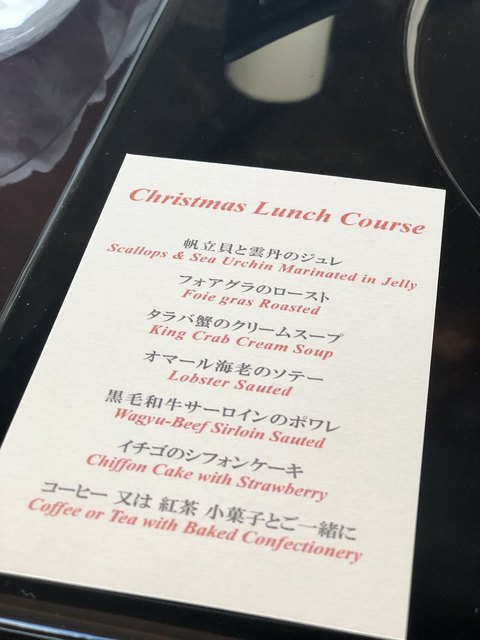 Christmas Lunch Course
帆立貝と雲丹のジュレ
Scallops & Sea Urchin Marinated in Jelly
フォアグラのロースト
Foie gras Roasted
タラバ蟹のクリームスープ
King Crab Cream Soup
オマール海老のソテー
Lobster Sauted
黒毛和牛サーロインのポワレ
Wagyu-Beef Sirloin Sauted
イチゴのシフォンケーキ
Chiffon Cake with Strawberry
コーヒー 又は 紅茶 小菓子とご一緒に
Coffee or Tea with Baked Confectionery